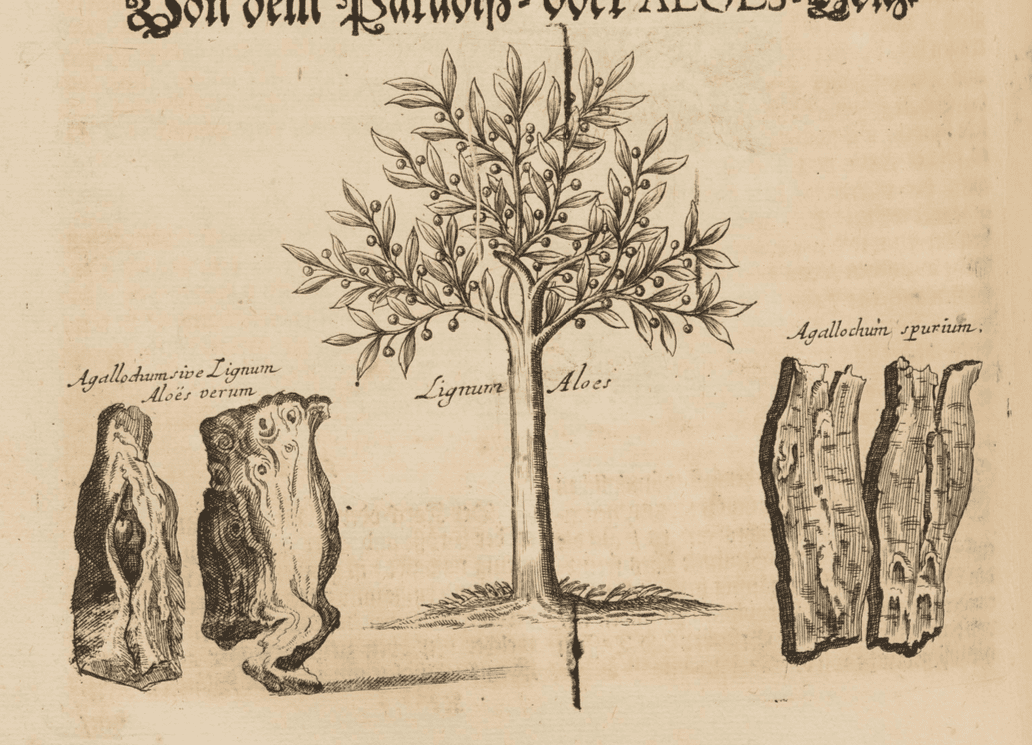 Von dem Paradiß- oder ALOES-Holtz.
Agallochum sive Lignum
Aloës verum
Lignum Aloes
Agallochum spurium.